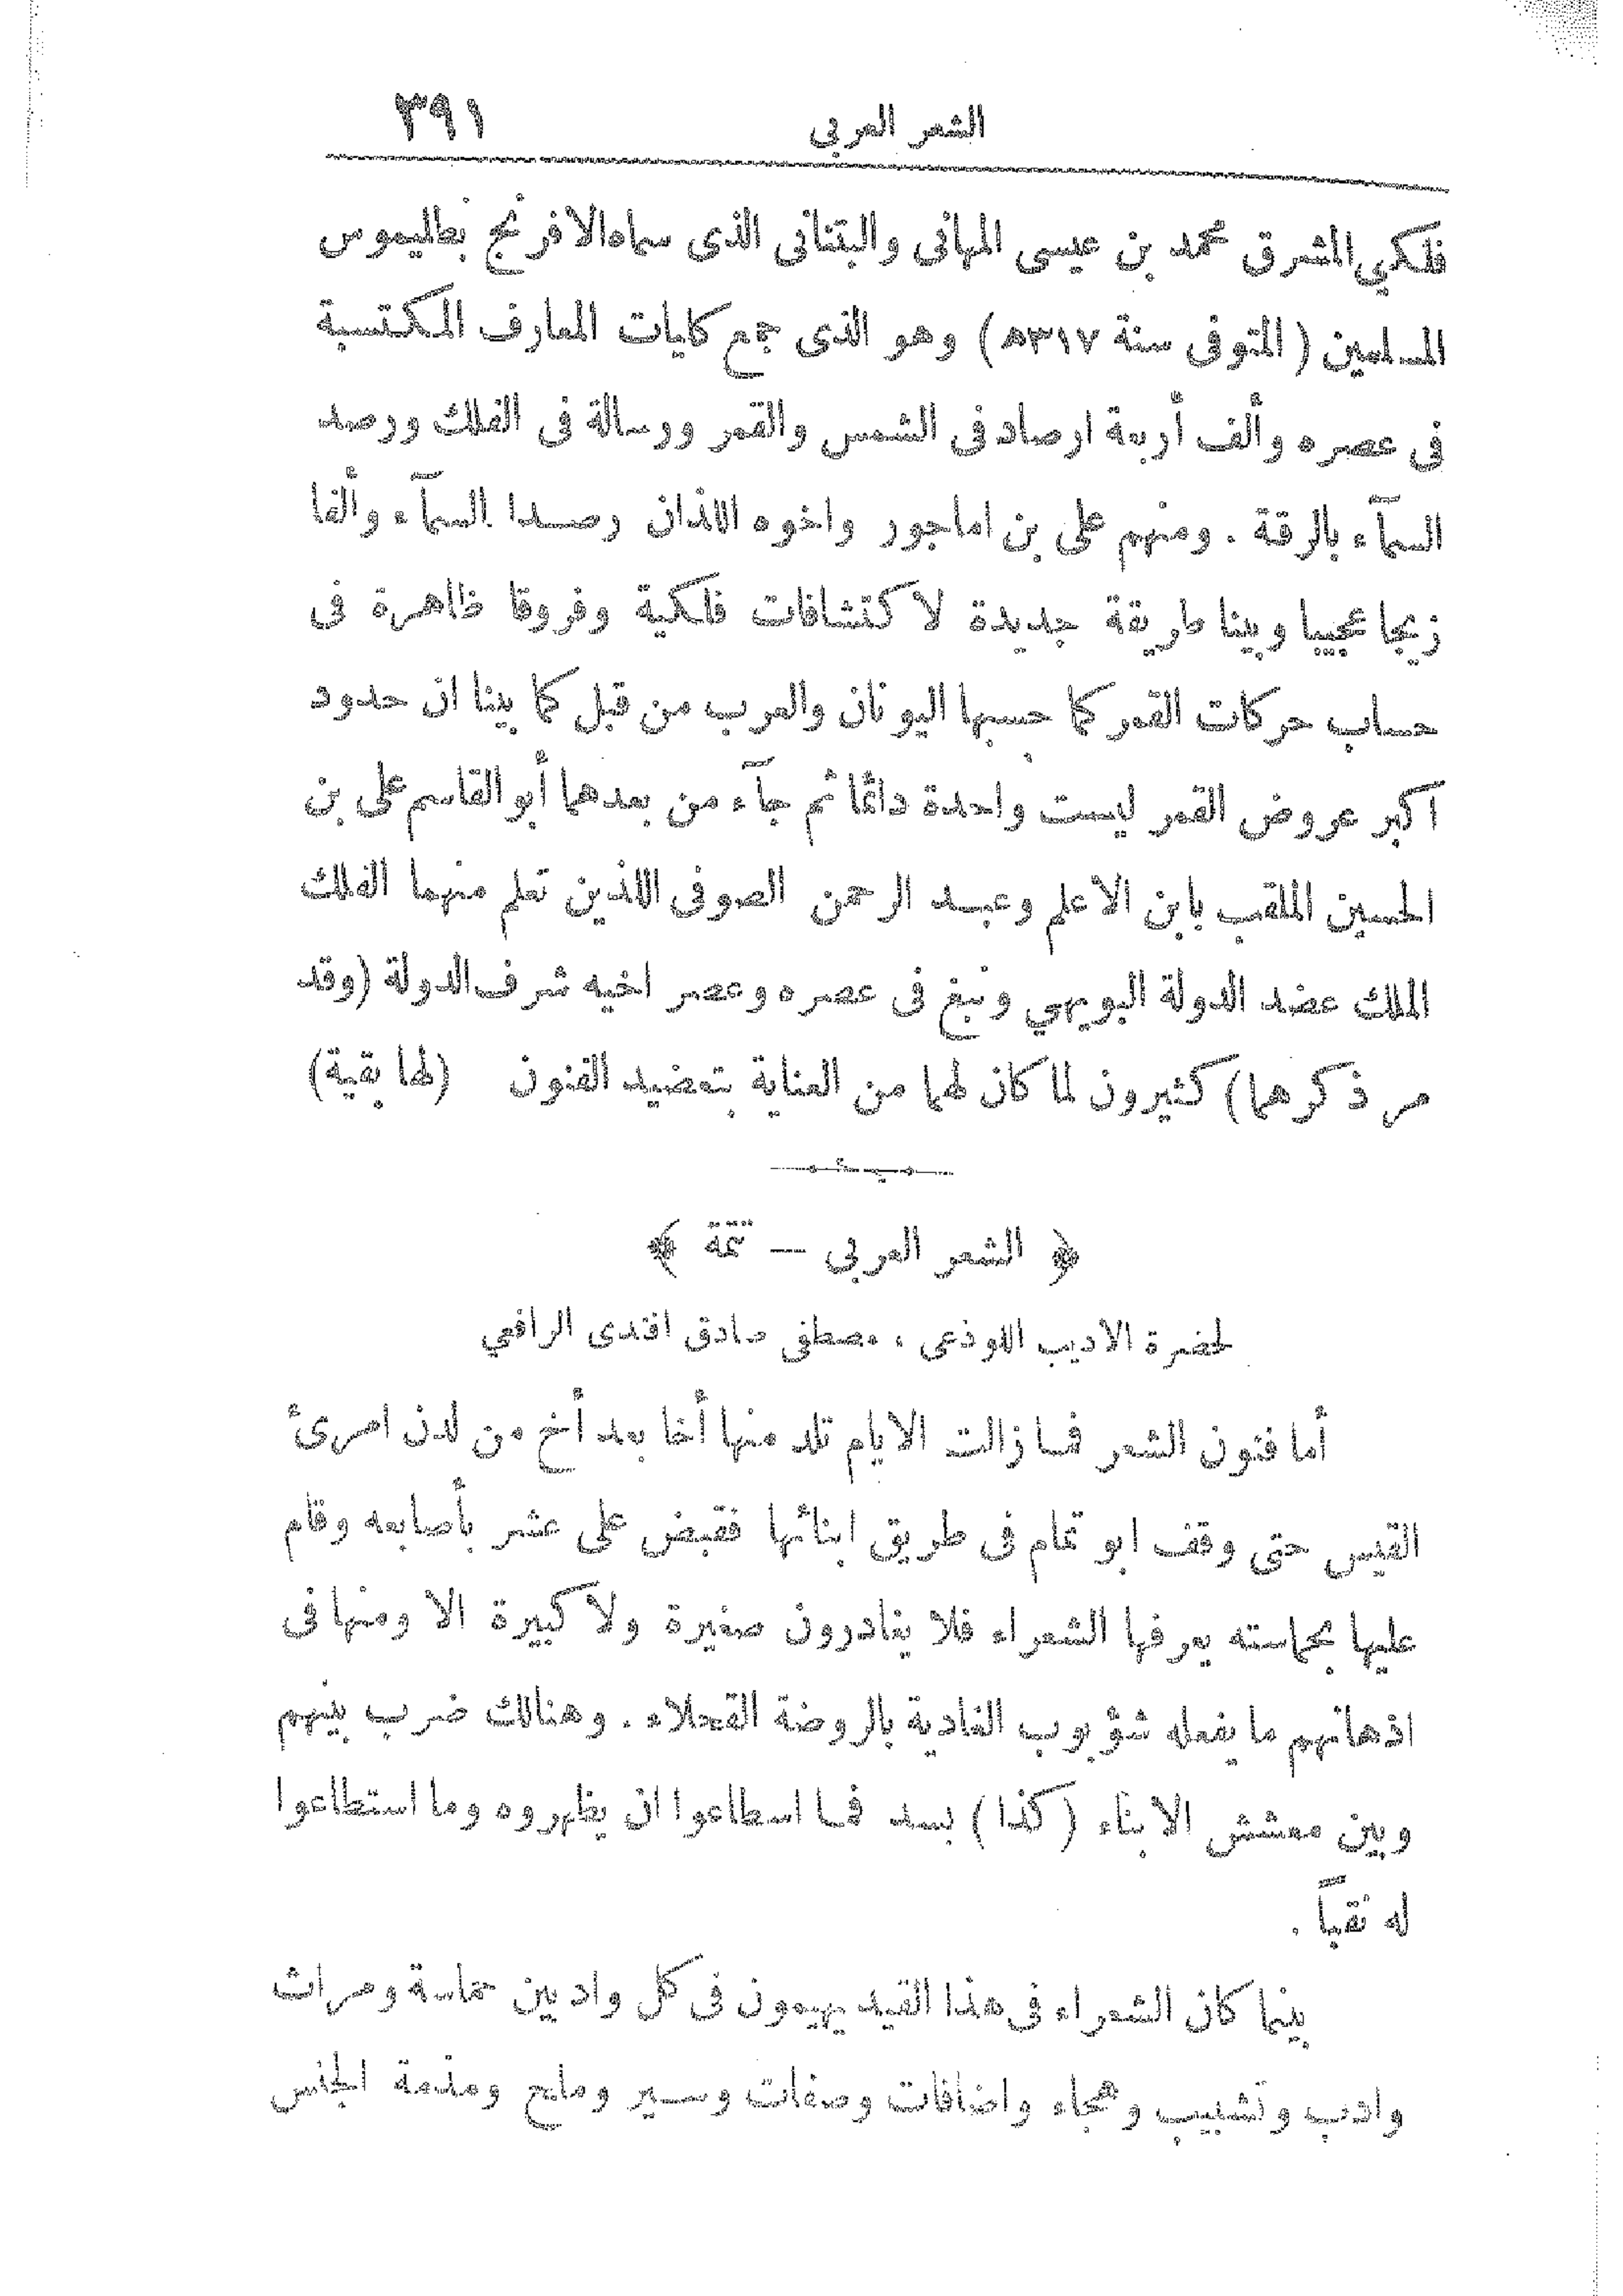 الشعر العربى ٣٩١
فلكي المشرق محمد بن عيسى المهانى والبتانى الذى سماه الافرنج بطليموس
المسلمين (المتوفى سنة ٣١٧ه) وهو الذى جمع كليات المعارف المكتسبة
فى عصره وألف أربعة ارصاد فى الشمس والقمر ورسالة فى الفلك ورصد
السمآء بالرقة . ومنهم على بن اماجور واخوه اللذان رصدا السمآء وألفا
زيجا عجيبا وبينا طريقة جديدة لاكتشافات فلكية وفروقا ظاهرة فى
حساب حركات القمر كما حسبها اليونان والعرب من قبل كما بينا ان حدود
اكبر عروض القمر ليست واحدة دائمًا ثم جآء من بعدهما أبو القاسم على بن
الحسين الملقب بابن الاعلم وعبد الرحمن الصوفى اللذين تعلم منهما الفلك
الملك عضد الدولة البويهي ونبغ فى عصره وعصر اخيه شرف الدولة (وقد
مر ذكرهما) كثيرون لما كان لهما من العناية بتعضيد الفنون (لها بقية)
﴿ الشعر العربى — تتمة ﴾
لحضرة الاديب اللوذعى ، مصطفى صادق افندى الرافعي
أما فنون الشعر فما زالت الايام تلد منها أخا بعد أخ من لدن امرئ
القيس حتى وقف ابو تمام فى طريق ابنائها فقبض على عشر بأصابعه وقام
عليها بحماسته يعرفها الشعراء فلا يغادرون صغيرة ولا كبيرة الا ومنها فى
اذهانهم ما يفعله شؤبوب الغادية بالروضة القحلاء . وهنالك ضرب بينهم
وبين معشش الابناء (كذا) بسد فما اسطاعوا ان يظهروه وما استطاعوا
له نقباً .
بينما كان الشعراء فى هذا القيد يهيمون فى كل واد بين حماسة ومراث
وادب وتشبيب وهجاء واضافات وصفات وسير وملح ومذمة الجنس